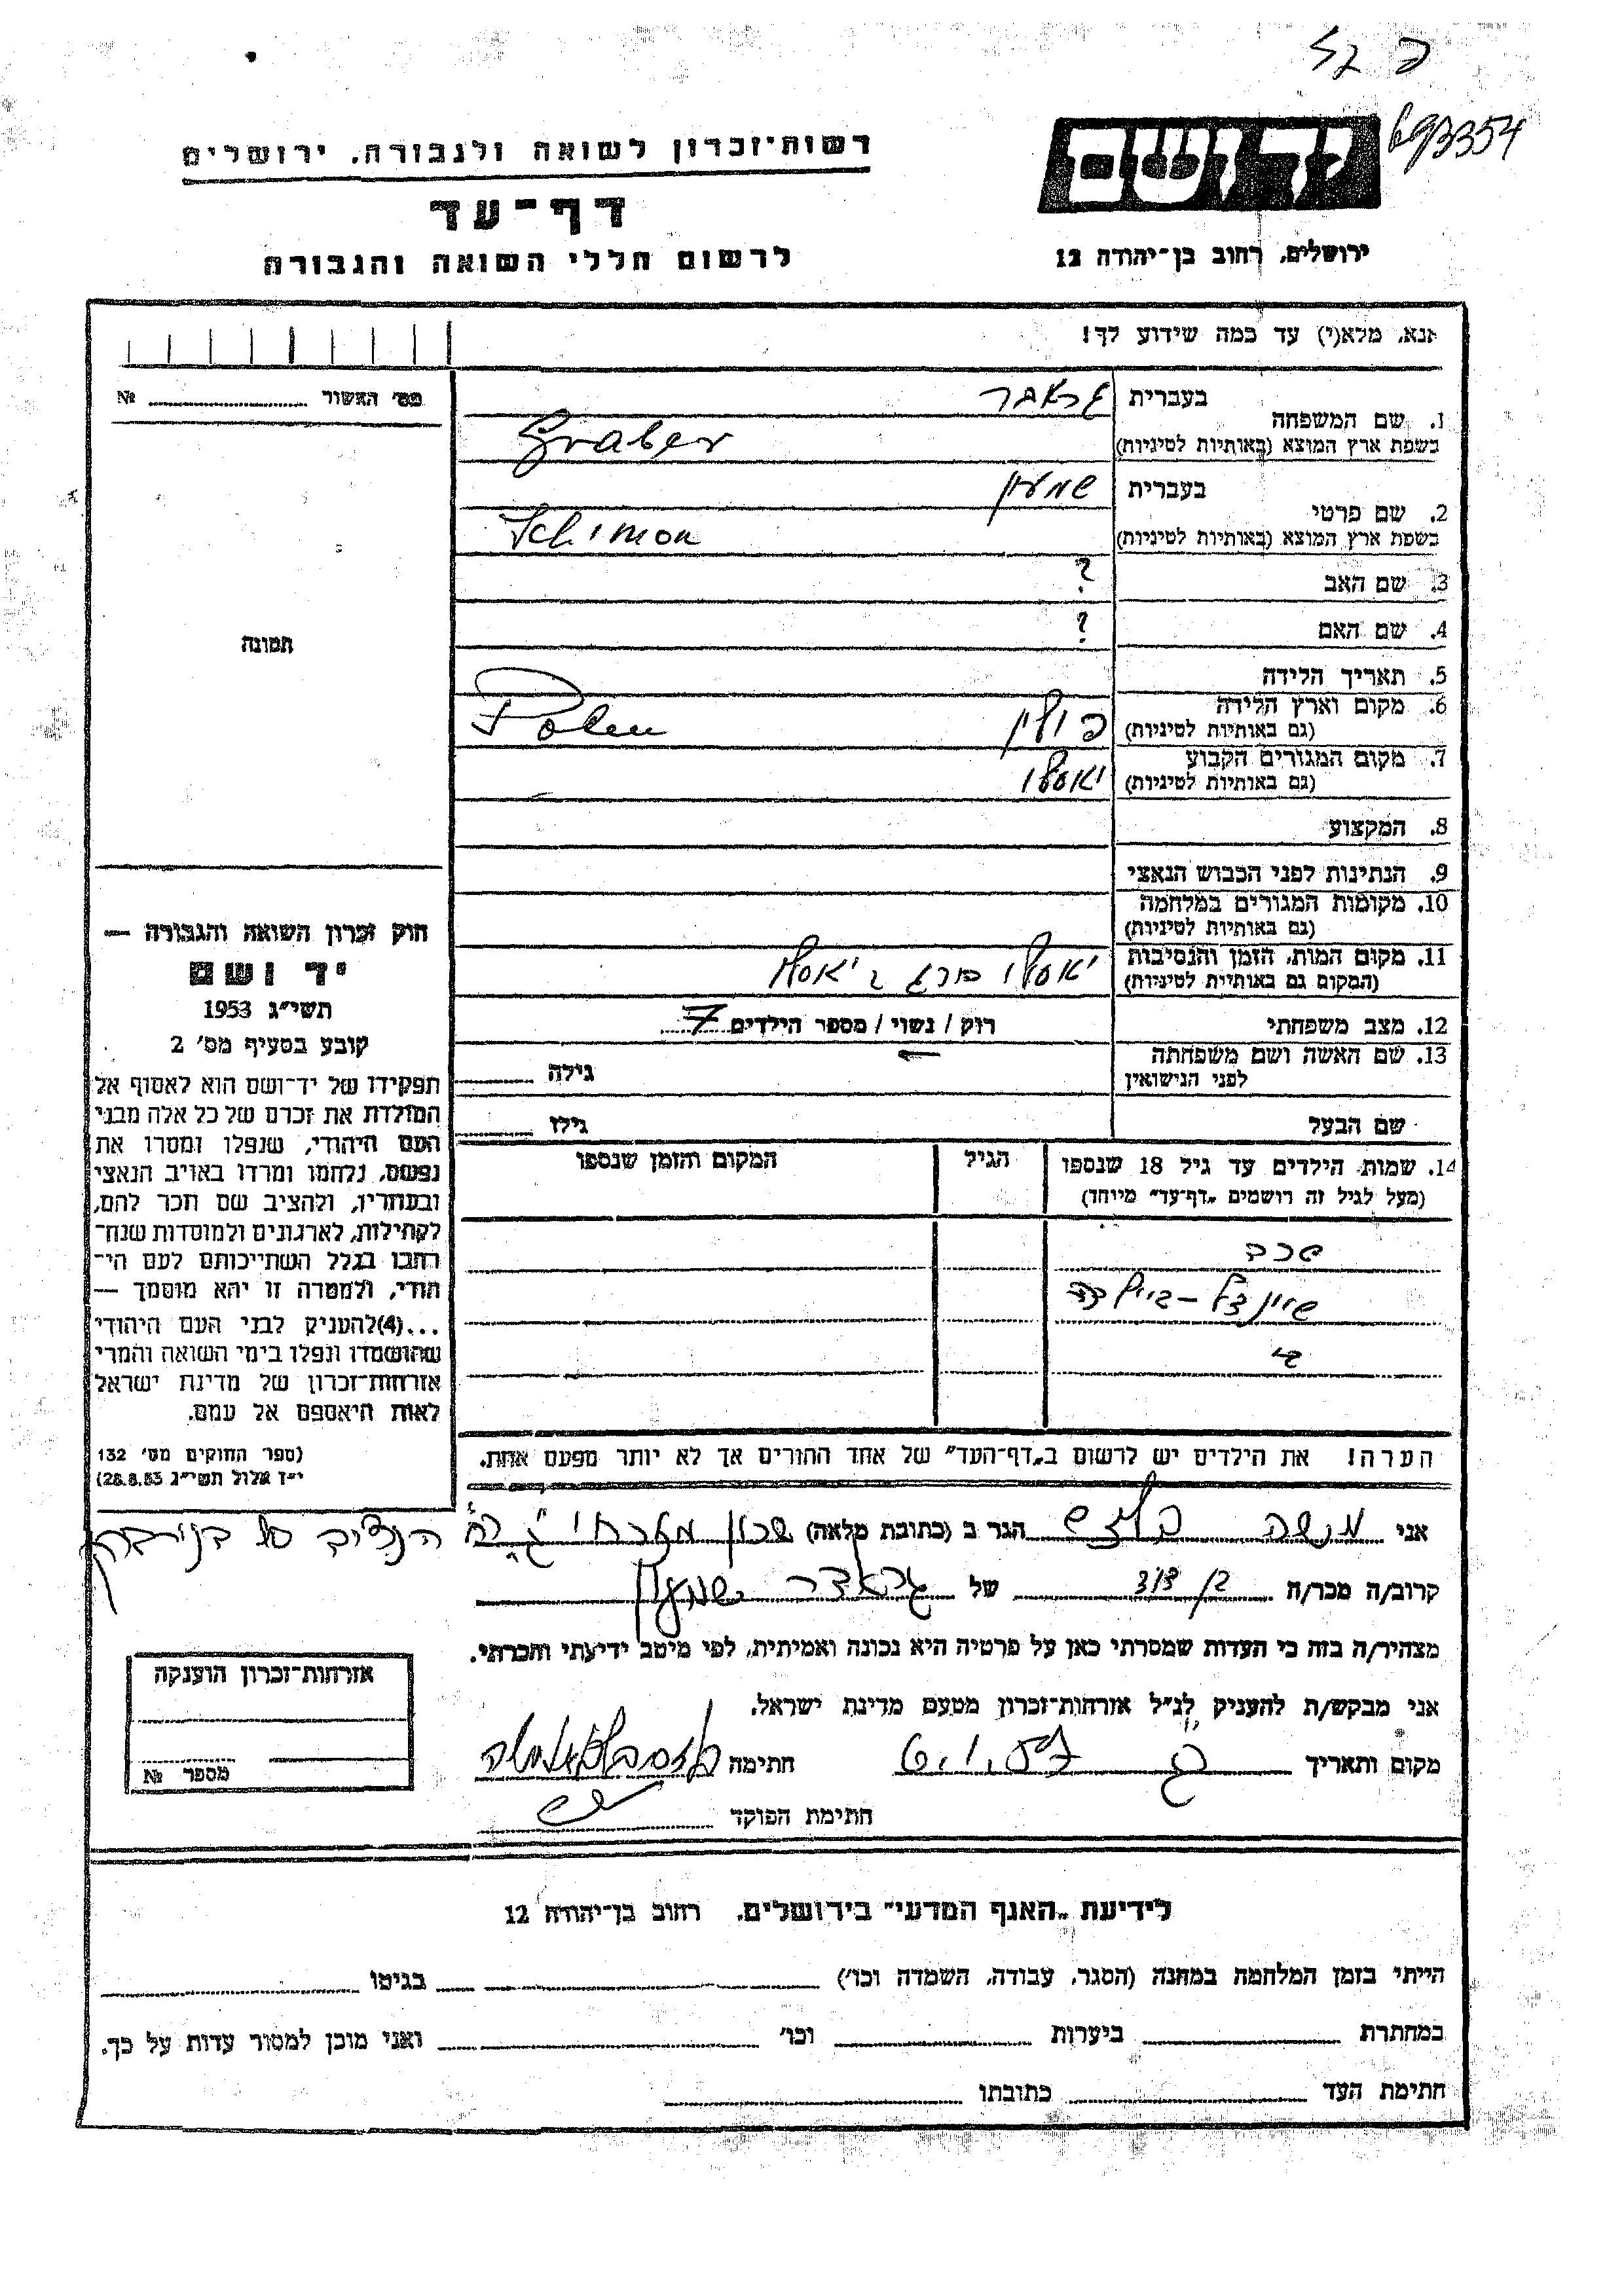 693354
יד ושם
ירושלים, רחוב בן־יהודה 12
רשות־זכרון לשואה ולגבורה, ירושלים
דף־עד
לרשום חללי השואה והגבורה
אנא, מלא(י) עד כמה שידוע לך!
מס׳ האשור № 
1. שם המשפחה
בעברית גראבר
בשפת ארץ המוצא (באותיות לטיניות) Graber
2. שם פרטי
בעברית שמעון
בשפת ארץ המוצא (באותיות לטיניות) Schimon
3. שם האב ?
4. שם האם ?
5. תאריך הלידה
6. מקום וארץ הלידה
(גם באותיות לטיניות) פולין Polen
7. מקום המגורים הקבוע
(גם באותיות לטיניות) יאסלו
8. המקצוע
9. הנתינות לפני הכבוש הנאצי
10. מקומות המגורים במלחמה
(גם באותיות לטיניות)
11. מקום המות, הזמן והנסיבות
(המקום גם באותיית לטיניות) יאסלו
12. מצב משפחתי רוק / נשוי / מספר הילדים 7
13. שם האשה ושם משפחתה
לפני הנישואין גילה
שם הבעל גילו
14. שמות הילדים עד גיל 18 שנספו
(מעל לגיל זה רושמים „דף־עד” מיוחד)
הגיל
המקום והזמן שנספו
תמונה
חוק זכרון השואה והגבורה —
יד ושם
תשי״ג 1953
קובע בסעיף מס׳ 2
תפקידו של יד־ושם הוא לאסוף אל
המולדת את זכרם של כל אלה מבני
העם היהודי, שנפלו ומסרו את
נפשם, נלחמו ומרדו באויב הנאצי
ובעוזריו, ולהציב שם וזכר להם,
לקהילות, לארגונים ולמוסדות שנח־
רבו בגלל השתייכותם לעם הי־
הודי, ולמטרה זו יהא מוסמך —
...(4)להעניק לבני העם היהודי
שהושמדו ונפלו בימי השואה והמרי
אזרחות־זכרון של מדינת ישראל
לאות היאספם אל עמם.
(ספר החוקים מס׳ 132
י״ז אלול תשי״ג 28.8.53)
הערה! את הילדים יש לרשום ב„דף־העד” של אחד ההורים אך לא יותר מפעם אחת.
אני מנשה הגר ב (כתובת מלאה) שכון מזרחי
קרוב/ה מכר/ה בן דוד של גראבר שמעון
מצהיר/ה בזה כי העדות שמסרתי כאן על פרטיה היא נכונה ואמיתית, לפי מיטב ידיעתי והכרתי.
אני מבקש/ת להעניק לנ״ל אזרחות־זכרון מטעם מדינת ישראל.
מקום ותאריך חתימה
חתימת הפוקד
אזרחות־זכרון הוענקה
מספר №
לידיעת „האגף המדעי” בירושלים, רחוב בן־יהודה 12
הייתי בזמן המלחמה במחנה (הסגר, עבודה, השמדה וכו׳) בגיטו
במחתרת ביערות וכו׳ ואני מוכן למסור עדות על כך.
חתימת העד כתובתו